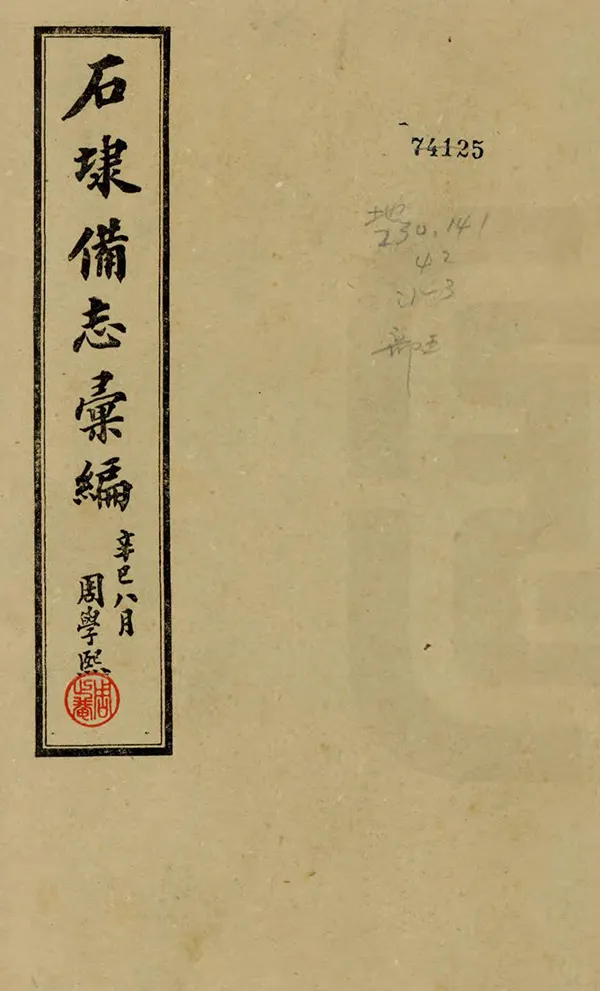 石埭備志彙編
辛巳八月
周學熙
周止菴
74125
地
230.141
42
:1-3
部五